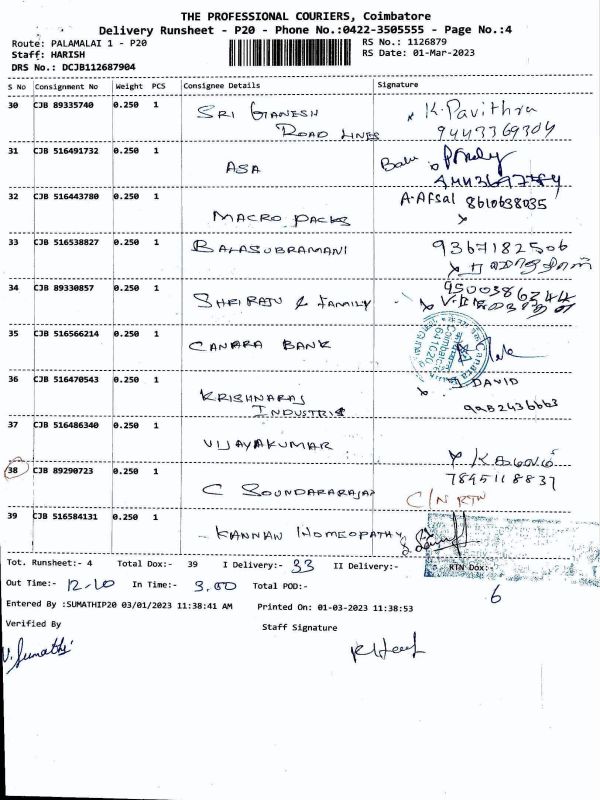 THE PROFESSIONAL COURIERS, Coimbatore
Delivery Runsheet - P20 - Phone No.:0422-3505555 - Page No.:4
Route: PALAMALAI 1 - P20
RS No.: 1126879
Staff: HARISH
RS Date: 01-Mar-2023
DRS No.: DCJB112687904
S No Consignment No Weight PCS Consignee Details Signature
30 CJB 89335740 0.250 1 SRI GANESH ROAD LINES K. Pavithra
9443369304
31 CJB 516491732 0.250 1 ASA Balu
32 CJB 516443780 0.250 1 MACRO PACKS A. Afsal 8610638035
33 CJB 516538827 0.250 1 BALASUBRAMANI 9367182506
34 CJB 89330857 0.250 1 SHRIRAM & FAMILY 9500386244
35 CJB 516566214 0.250 1 CANARA BANK
36 CJB 516470543 0.250 1 KRISHNARAJ INDUSTRIS J DAVID
37 CJB 516486340 0.250 1 VIJAYAKUMAR
7895118837
38 CJB 89290723 0.250 1 C SOUNDARARAJAN C/N RTN
39 CJB 516584131 0.250 1 KANNAN HOMEOPATHY
Tot. Runsheet:- 4 Total Dox:- 39 I Delivery:- 33 II Delivery:- RTN Dox:- 6
Out Time:- 12.10 In Time:- 3.00 Total POD:-
Entered By :SUMATHIP20 03/01/2023 11:38:41 AM Printed On: 01-03-2023 11:38:53
Verified By Staff Signature
V. Sumathi